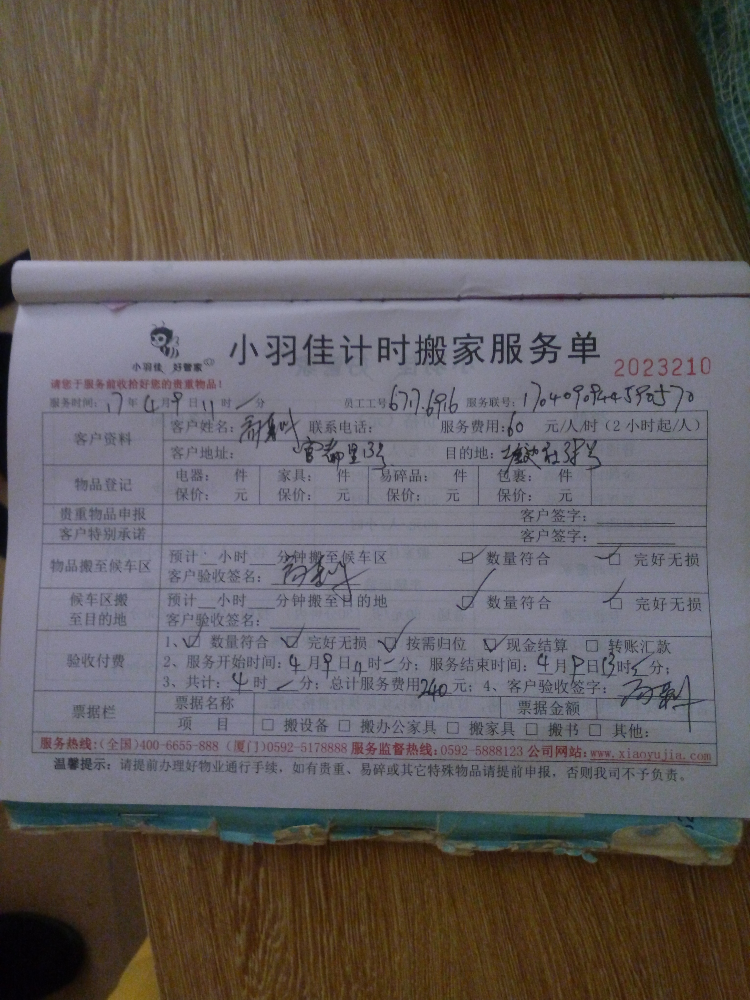 小羽佳 好管家
小羽佳计时搬家服务单
2023210
请您于服务前收拾好您的贵重物品!
服务时间: 17 年 4 月 9 日 11 时 一 分 员工工号: 6717.6916 服务联号: 1704090944590570
客户资料
客户姓名: 联系电话: 服务费用: 60 元/人/时(2小时起/人)
客户地址: 里13号 目的地: 38号
物品登记
电器: 件 家具: 件 易碎品: 件 包裹: 件
保价: 元 保价: 元 保价: 元 保价: 元
贵重物品申报 客户签字:
客户特别承诺 客户签字:
物品搬至候车区
预计 小时 分钟搬至候车区 数量符合 完好无损
客户验收签名:
候车区搬至目的地
预计 小时 分钟搬至目的地 数量符合 完好无损
客户验收签名:
验收付费
1、 数量符合 完好无损 按需归位 现金结算 转账汇款
2、服务开始时间: 4 月 9 日 11 时 一 分; 服务结束时间: 4 月 9 日 13 时 一 分;
3、共计: 4 时 一 分; 总计服务费用 240 元; 4、客户验收签字:
票据栏
票据名称 票据金额
项 目 搬设备 搬办公家具 搬家具 搬书 其他:
服务热线:(全国)400-6655-888 (厦门)0592-5178888 服务监督热线:0592-5888123 公司网站:www.xiaoyujia.com
温馨提示: 请提前办理好物业通行手续, 如有贵重、易碎或其它特殊物品请提前申报, 否则我司不予负责。